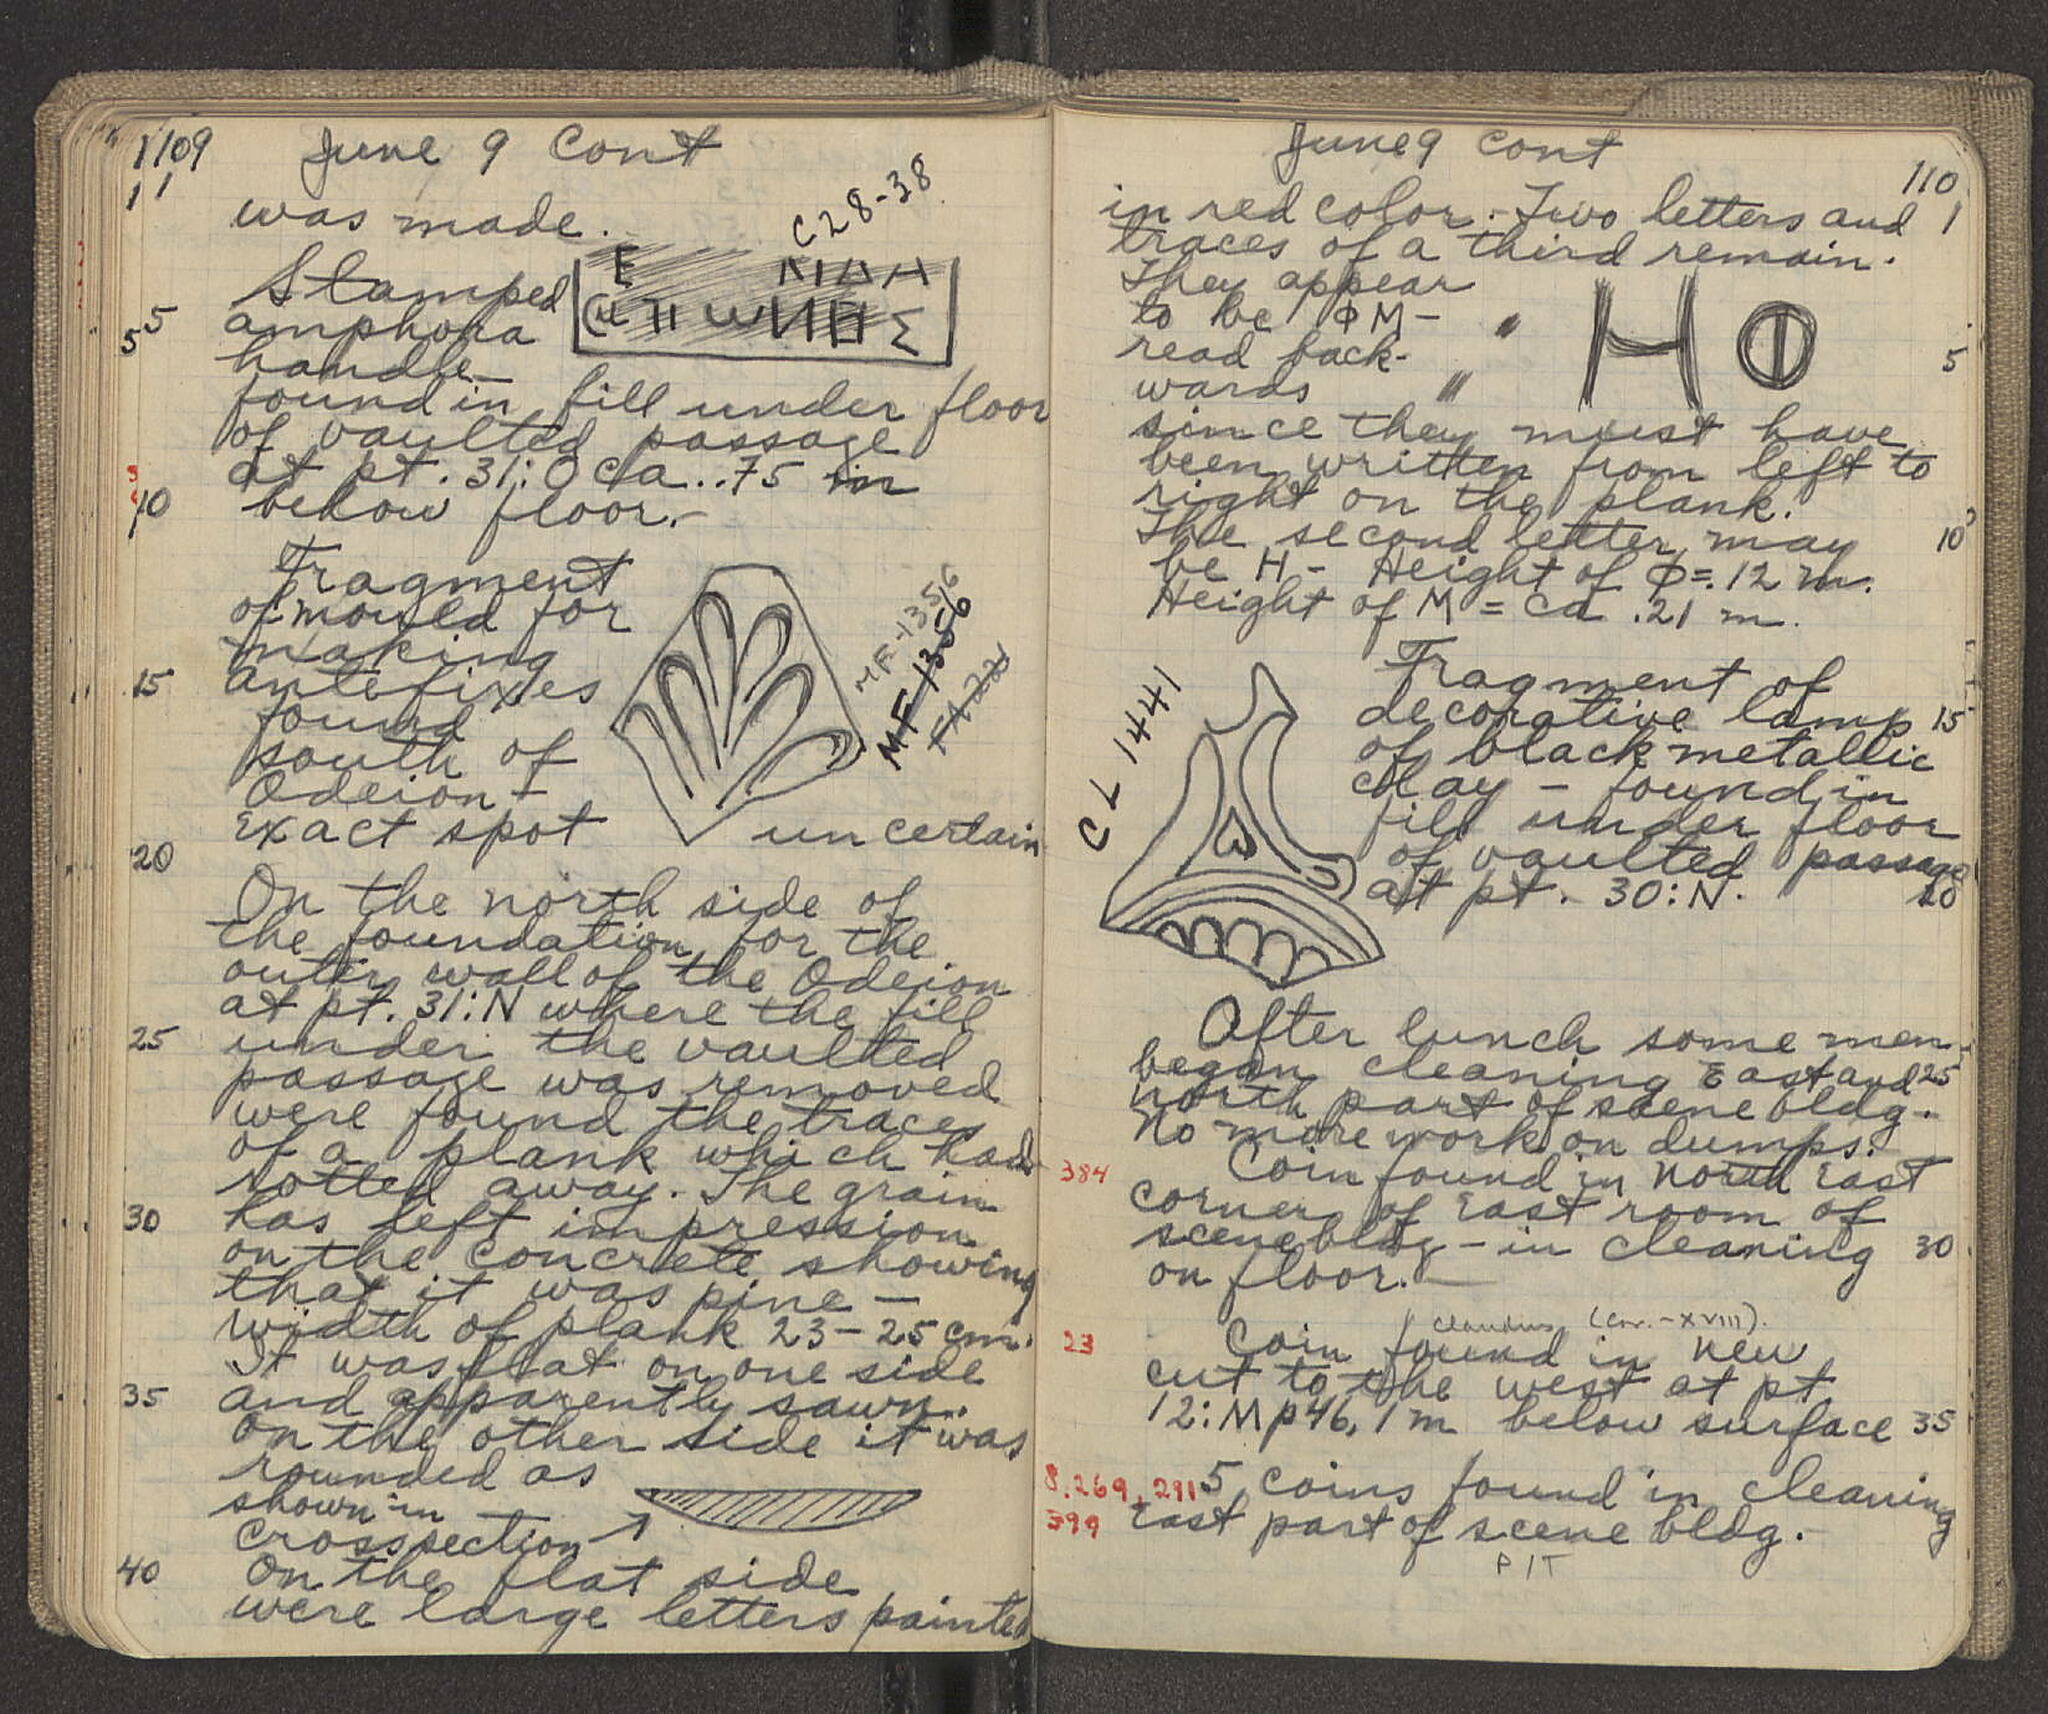 109 June 9 Cont
1
was made.
C28-38
Stamped
5 amphora
handle
found in fill under floor
of vaulted passage
at pt. 31:O Ca. .75 m
10 below floor.-
Fragment
of mould for
making
15 antefixes
found
south of
Odeion -
Exact spot uncertain
MF-1356
MF-1356
20
On the north side of
the foundation for the
outer wall of the Odeion
at pt. 31:N where the fill
25 under the vaulted
passage was removed
were found the traces
of a plank which had
rotted away. The grain
30 has left impression
on the concrete showing
that it was pine -
width of plank 23-25 cm.
It was flat on one side
35 and apparently sawn.
On the other side it was
rounded as
shown in
crossection
40 On the flat side
were large letters painted
June 9 Cont
110
in red color.- Two letters and 1
traces of a third remain.
They appear
to be ΦM -
read back- 5
wards
H Φ
since they must have
been written from left to
right on the plank.
The second letter may 10
be H - Height of Φ = .12 m.
Height of M = ca .21 m.
CL 1441
Fragment of
decorative lamp 15
of black metallic
clay - found in
fill under floor
of vaulted passage
at pt. 30:N. 20
After lunch some men
began cleaning East and 25
north part of scene bldg.-
No more work on dumps.
384 Coin found in North East
corner of East room of
scene bldg - in cleaning 30
on floor. -
Claudius (Cor.-XVIII).
23 Coin found in new
cut to the west at pt
12:M p46, 1 m below surface 35
8.269, 291 5 coins found in cleaning
399 East part of scene bldg.-
PIT